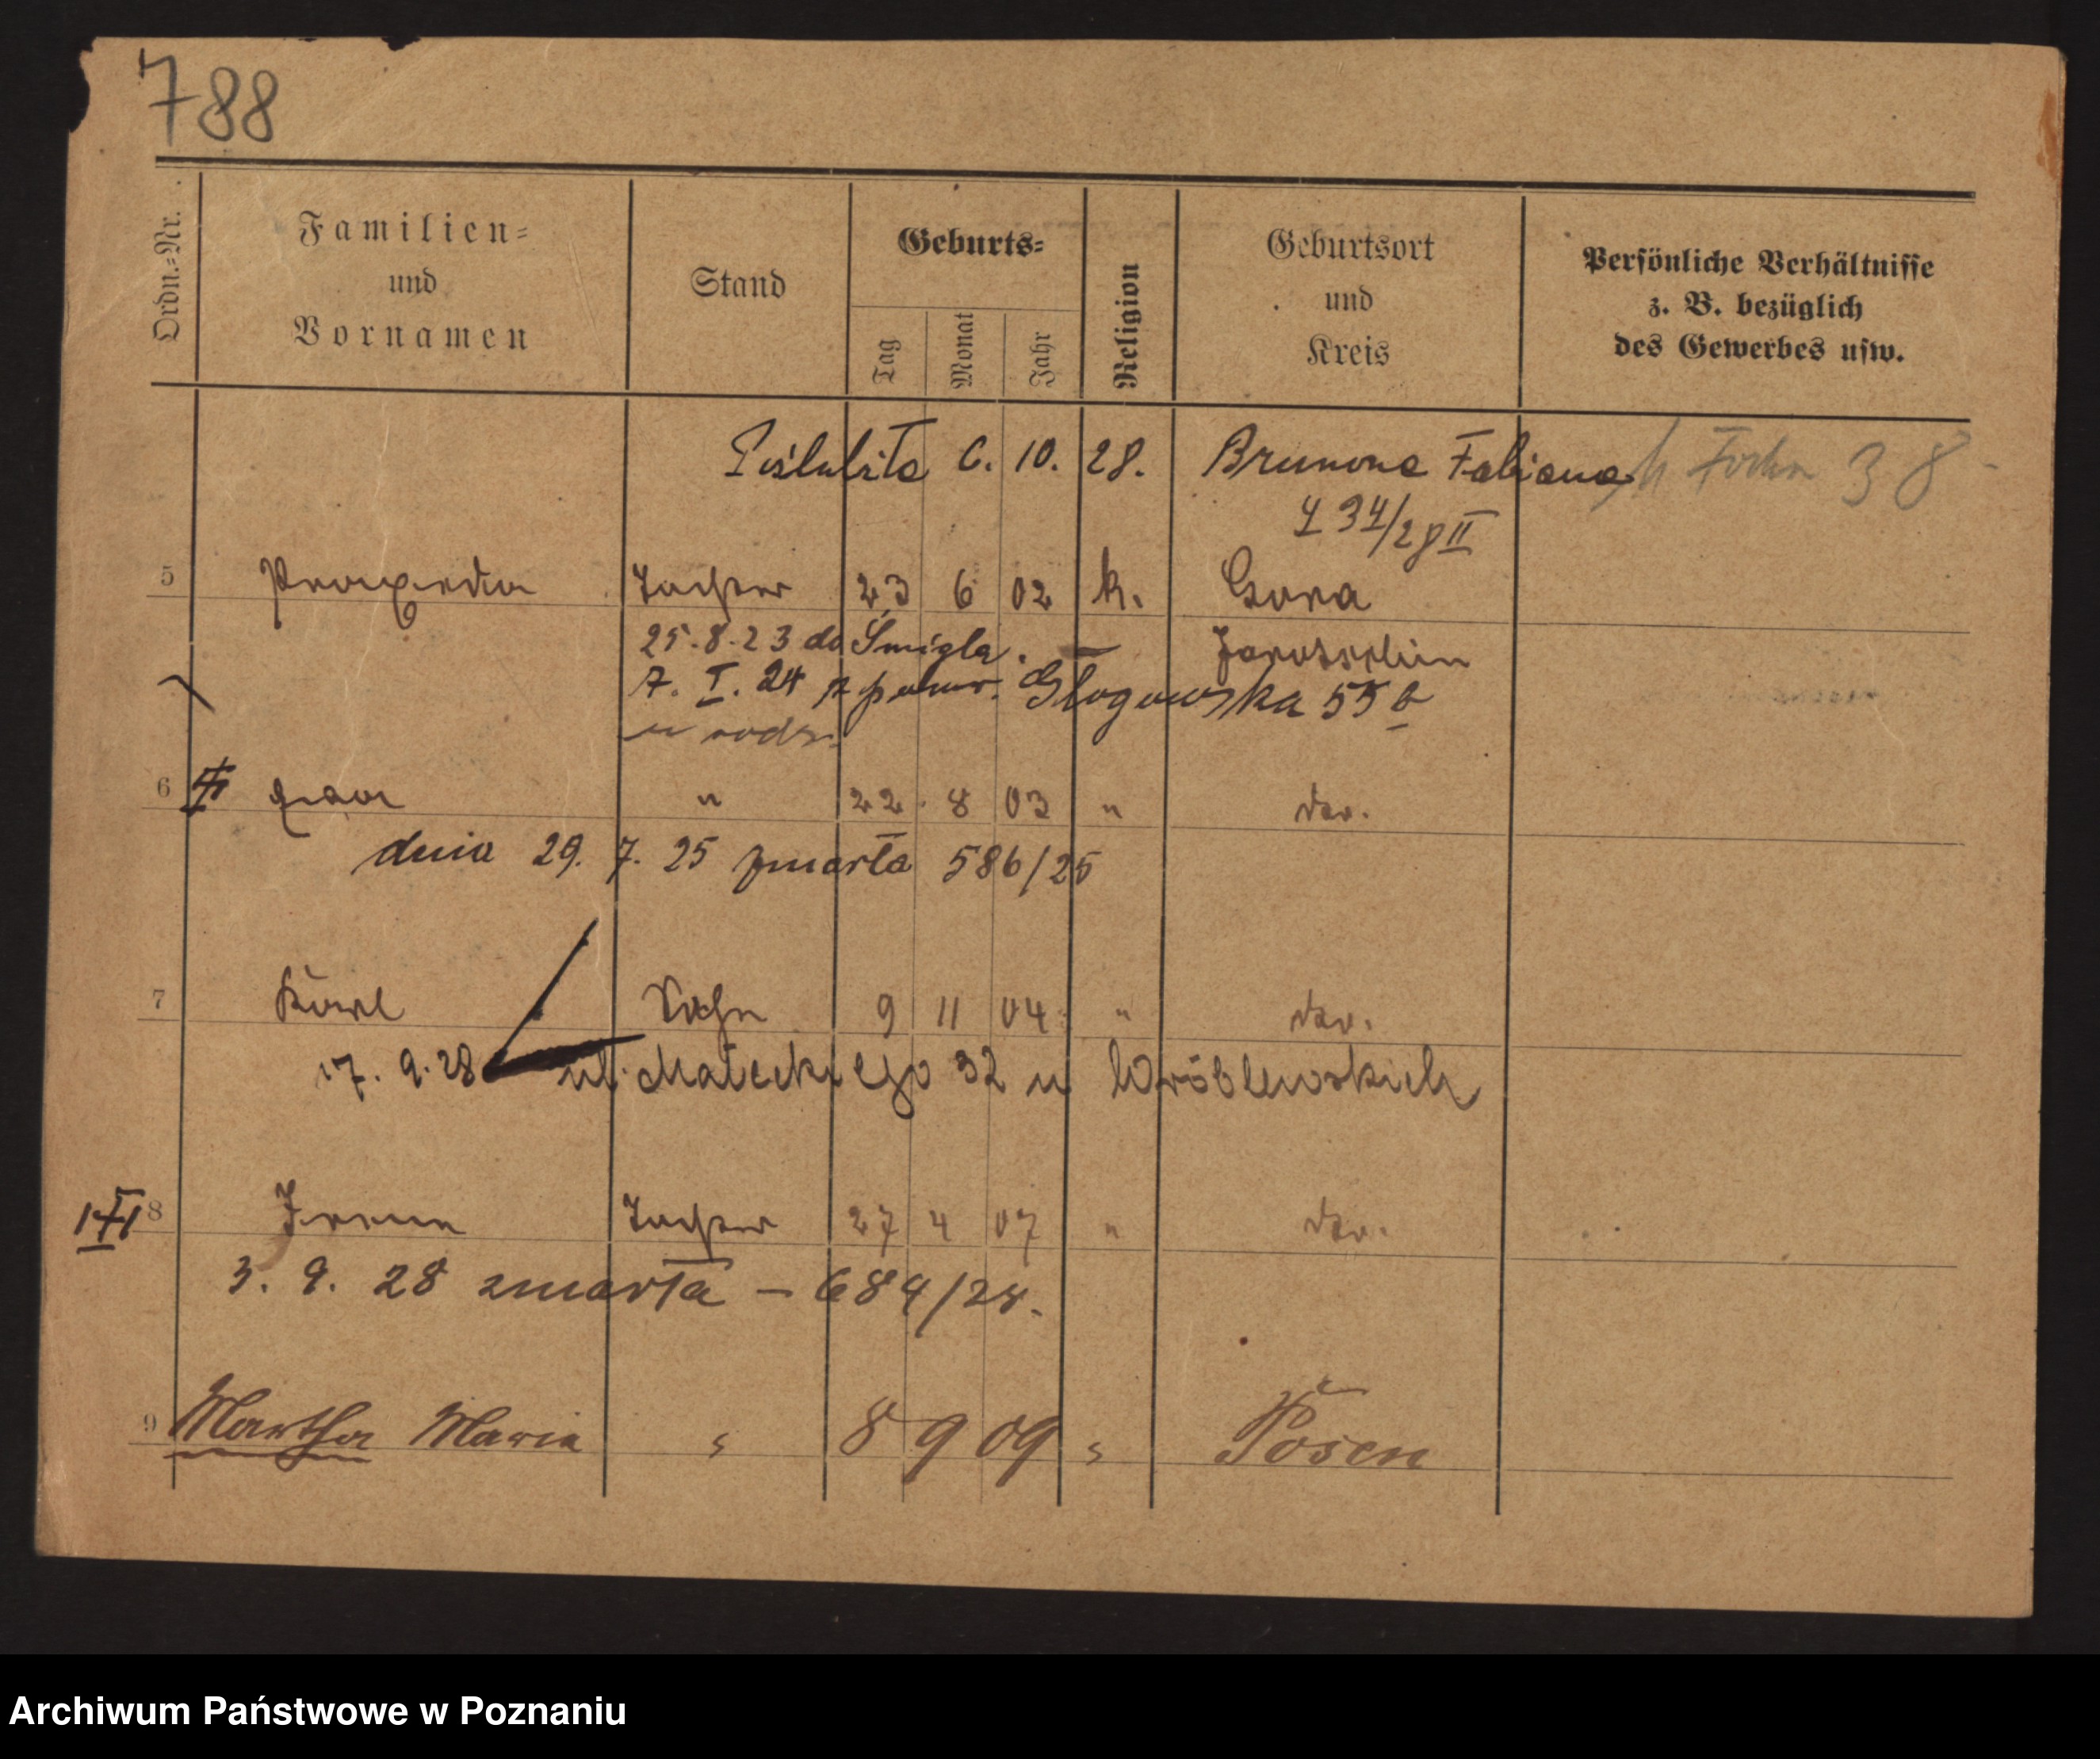 788
Ordn.-Nr.
Familien-
und
Vornamen
Stand
Geburts-
Tag
Monat
Jahr
Religion
Geburtsort
und
Kreis
Persönliche Verhältnisse
z. B. bezüglich
des Gewerbes usw.
Poślubiła 6. 10. 28. Brunona Fabiana Focha 38
434/28 II
5 Praxeda Tochter 23 6 02 k. Gora
25.8.23 do Śmigla. Jarotschin
7. I. 24 z powr. Głogowska 55
u rodz.
6 " 22. 8 03 " do.
dnia 29. 7. 25 zmarła 586/25
7 Karl Sohn 9 11 04 " do.
17. 9. 28 ul. Małeckiego 32 u Wróblewskich
8 Irene Tochter 27 4 07 " do.
3. 9. 28 zmarła – 684/28.
9 Martha Maria " 8 9 09 " Posen
Archiwum Państwowe w Poznaniu